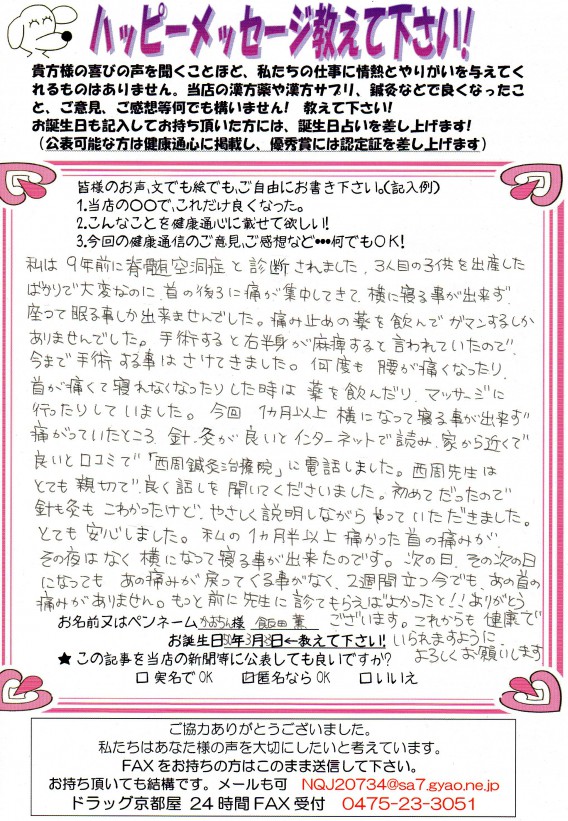 ハッピーメッセージ教えて下さい!
貴方様の喜びの声を聞くことほど、私たちの仕事に情熱とやりがいを与えてく
れるものはありません。当店の漢方薬や漢方サプリ、鍼灸などで良くなったこ
と、ご意見、ご感想等何でも構いません! 教えて下さい!
お誕生日も記入してお持ち頂いた方には、誕生日占いを差し上げます!
(公表可能な方は健康通心に掲載し、優秀賞には認定証を差し上げます)
皆様のお声、文でも絵でも、ご自由にお書き下さい。(記入例)
1.当店の〇〇で、これだけ良くなった。
2.こんなことを健康通心に載せて欲しい!
3.今回の健康通信のご意見、ご感想など•••何でもOK!
私は9年前に脊髄空洞症と診断されました。3人目の子供を出産した
ばかりで大変なのに、首の後ろに痛が集中してきて、横に寝る事が出来ず
座って眠る事しか出来ませんでした。痛み止めの薬を飲んでガマンするしか
ありませんでした。手術すると右半身が麻痺すると言われていたので
今まで手術する事はさけてきました。何度も腰が痛くなったり、
首が痛くて寝れなくなったりした時は薬を飲んだり、マッサージに
行ったりしていました。今回1ヵ月以上横になって寝る事が出来ず
痛がっていたところ、針・灸が良いとインターネットで読み、家から近くて
良いと口コミで「西周鍼灸治療院」に電話しました。西周先生は
とても親切で良く話しを聞いてくださいました。初めてだったので
針も灸もこわかったけど、やさしく説明しながらやっていただきました。
とても安心しました。私の1ヵ月半以上痛かった首の痛みが、
その夜はなく横になって寝る事が出来たのです。次の日、その次の日
になってもあの痛みが戻ってくる事がなく、2週間立つ今でも、あの首の
痛みがありません。もっと前に先生に診てもらえばよかったと!!ありがとう
お名前又はペンネーム かおちん様 飯田薫 ございます。これからも健康で
お誕生日 年3月 日←教えて下さい! いられますように
★この記事を当店の新聞等に公表しても良いですか? よろしくお願いします
□実名でOK ☑匿名ならOK □いいえ
ご協力ありがとうございました。
私たちはあなた様の声を大切にしたいと考えています。
FAXをお持ちの方はこのまま送信して下さい。
お持ち頂いても結構です。メールも可 NQJ20734@sa7.gyao.ne.jp
ドラッグ京都屋 24時間FAX受付 0475-23-3051